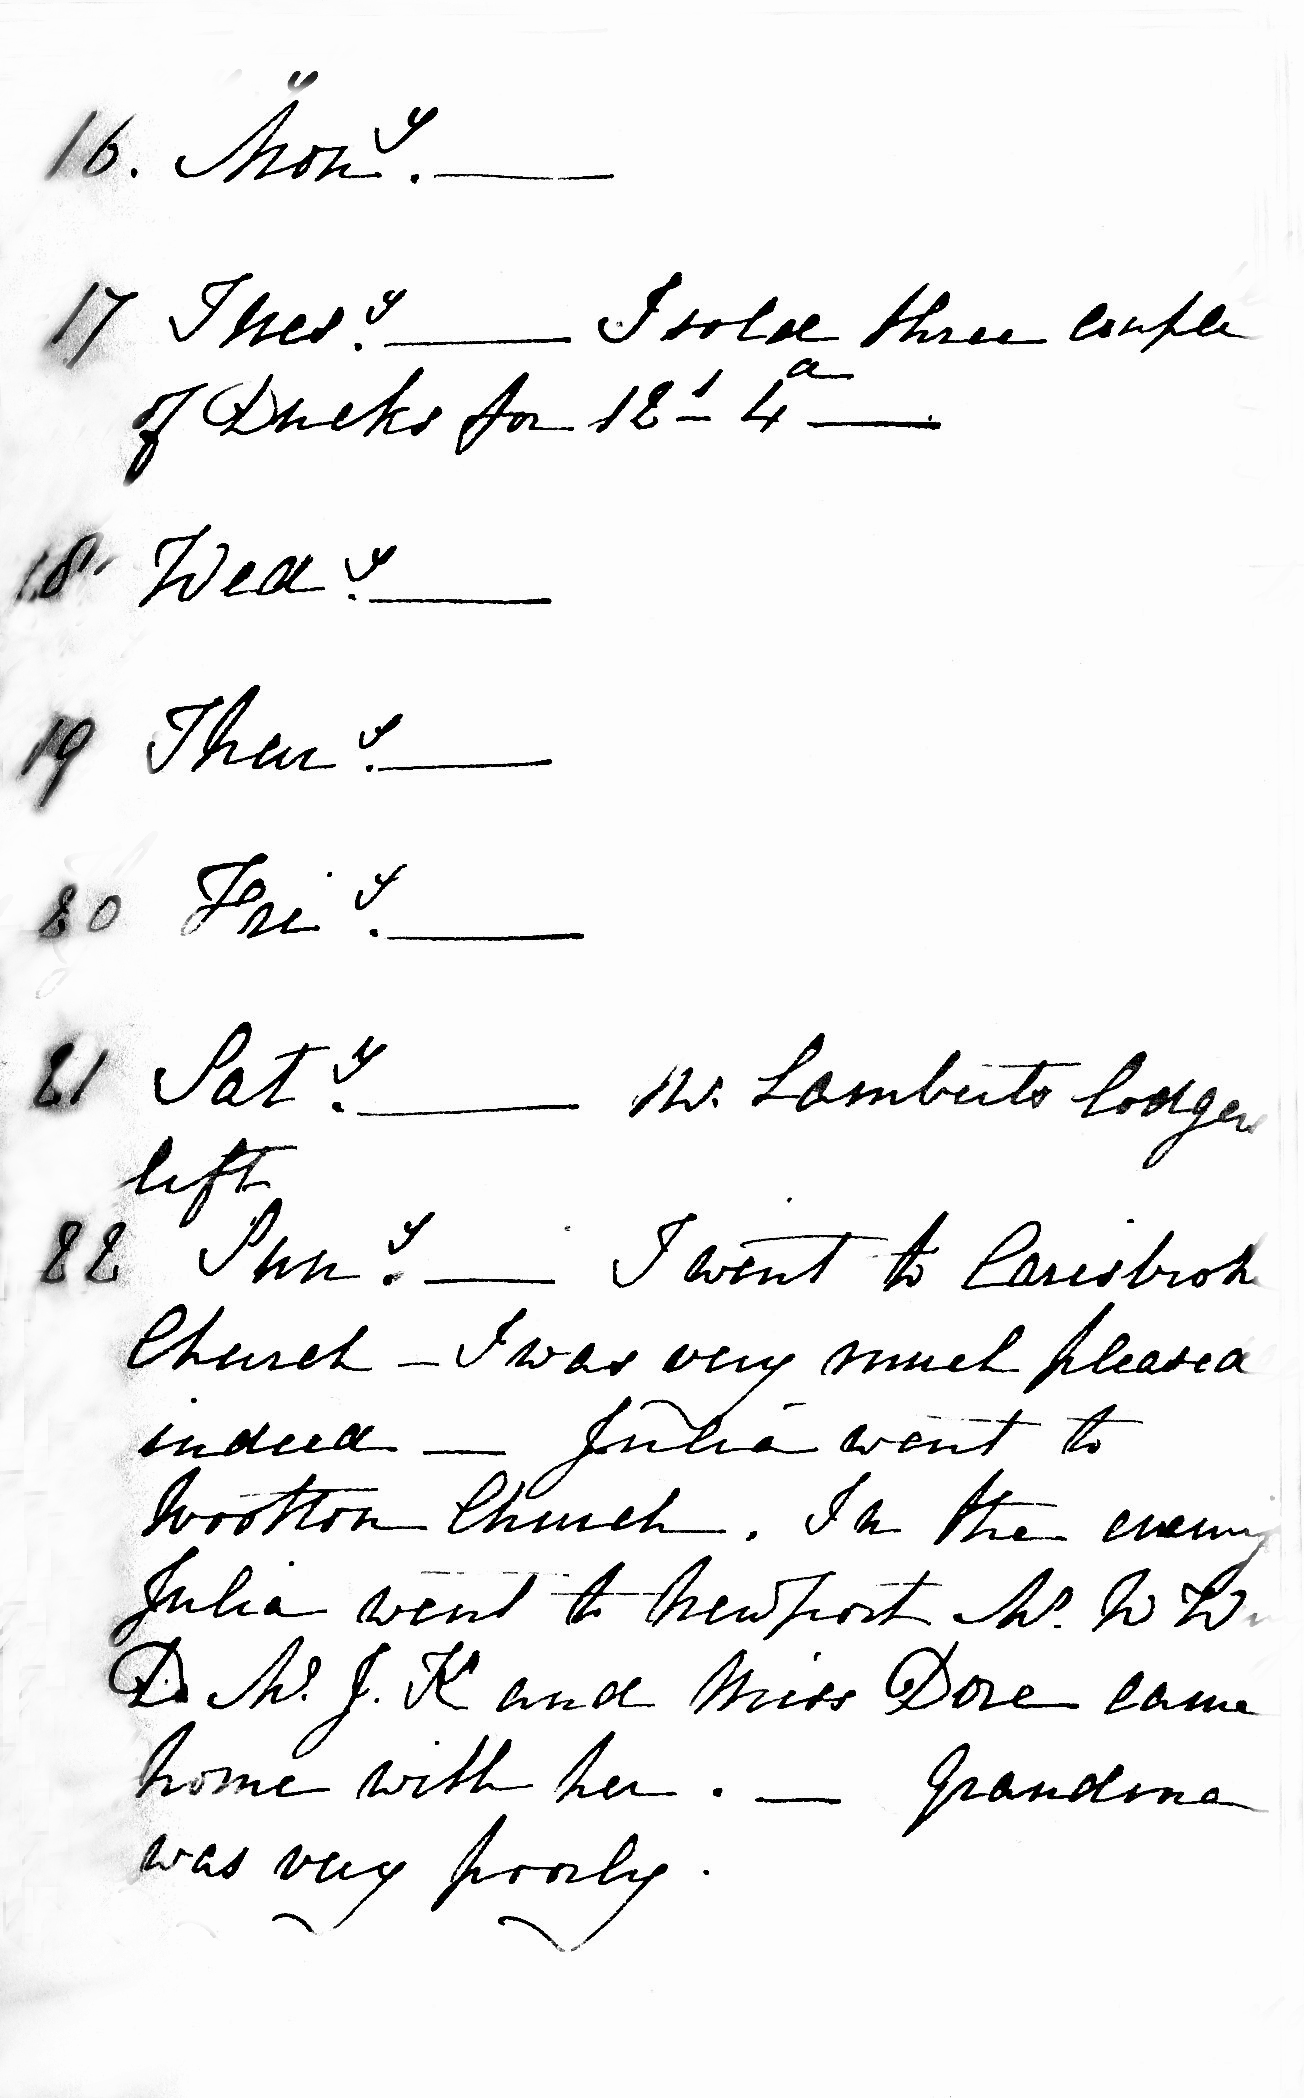 16. Mon^y. ——
17 Tues^y. —— I sold three couple
of Ducks for 12^s 4^d ——
18 Wed^y. ——
19 Thur^y. ——
20 Fri^y. ——
21 Sat^y. —— W. Lamberts lodgers
left
22 Sun^y. —— I went to Carisbrok
Church — I was very much pleased
indeed — Julia went to
Wootton Church. In the evening
Julia went to Newport Mr. W W
D. Mr. J. K and Miss Dore came
home with her. — Grandma
was very poorly.